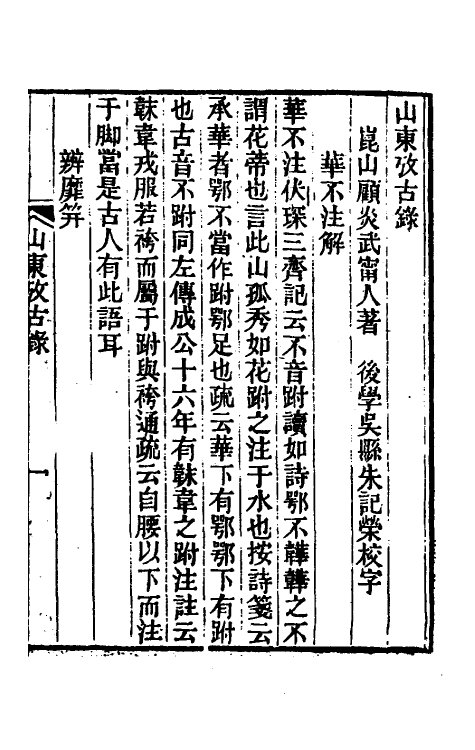 山東攷古錄
崑山顧炎武甯人著　後學吳縣朱記榮校字
華不注解
華不注伏琛三齊記云不音跗讀如詩鄂不韡韡之不
謂花蒂也言此山孤秀如花跗之注于水也按詩箋云
承華者鄂不當作跗鄂足也疏云華下有鄂鄂下有跗
也古音不跗同左傳成公十六年有韎韋之跗注註云
韎韋戎服若袴而屬于跗與袴通疏云自腰以下而注
于脚當是古人有此語耳
辨靡笄
山東攷古錄
一